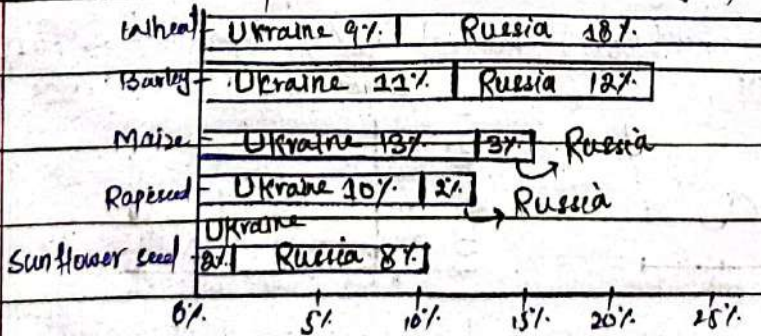 Wheat Ukraine 9% Russia 18%
Barley Ukraine 11% Russia 12%
Maize Ukraine 13% 3% Russia
Rapeseed Ukraine 10% 2% Russia
Ukraine
Sunflower seed 2% Russia 8%
0% 5% 10% 15% 20% 25%